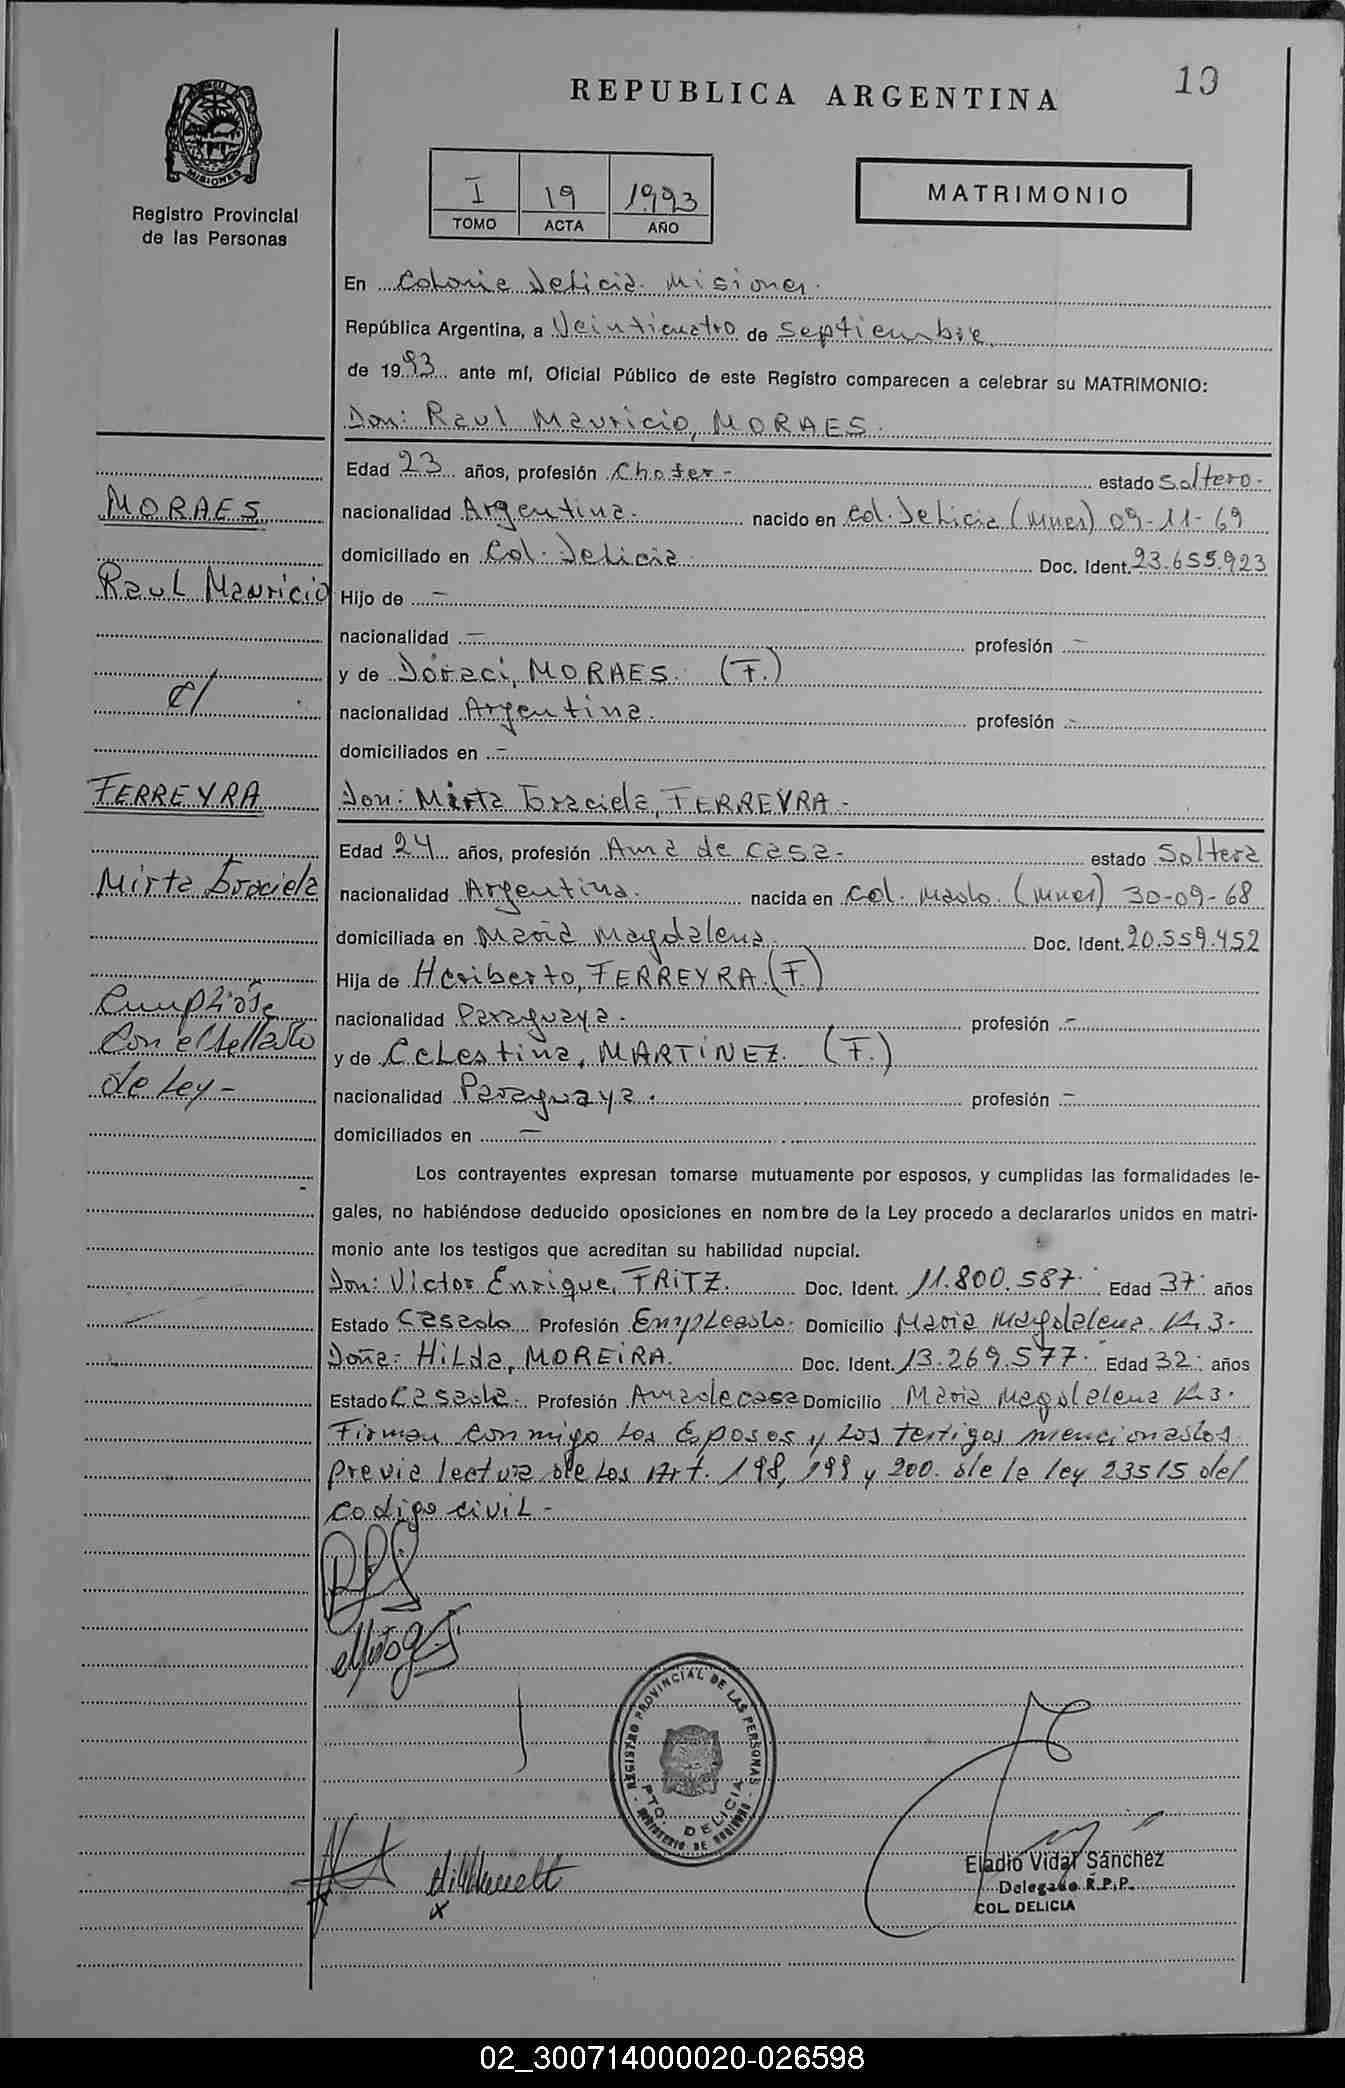 19
REPUBLICA ARGENTINA
MISIONES
Registro Provincial
de las Personas
I 19 1993
TOMO ACTA AÑO
MATRIMONIO
En Colonia Delicia. Misiones.
República Argentina, a Veinticuatro de Septiembre
de 1993 ante mí, Oficial Público de este Registro comparecen a celebrar su MATRIMONIO:
Don: Raul Mauricio, MORAES.
Edad 23 años, profesión Chofer - estado Soltero -
MORAES
nacionalidad Argentina. nacido en Col. Delicia (Mnes) 09-11-69
domiciliado en Col. Delicia. Doc. Ident. 23.655.923
Raul Mauricio
Hijo de -
nacionalidad - profesión -
y de Doraci, MORAES. (F.)
c/
nacionalidad Argentina. profesión -
domiciliados en -
FERREYRA
Don: Mirta Graciela, FERREYRA -
Edad 24 años, profesión Ama de casa - estado Soltera
Mirta Graciela
nacionalidad Argentina. nacida en Col. Mado. (Mnes) 30-09-68
domiciliada en Maria Magdalena. Doc. Ident. 20.559.452
Hija de Heriberto, FERREYRA. (F.)
Cumpliose
nacionalidad Paraguaya. profesión -
con el sellado
y de Celestina, MARTINEZ. (F.)
de Ley -
nacionalidad Paraguaya. profesión -
domiciliados en -
Los contrayentes expresan tomarse mutuamente por esposos, y cumplidas las formalidades le-
gales, no habiéndose deducido oposiciones en nombre de la Ley procedo a declararlos unidos en matri-
monio ante los testigos que acreditan su habilidad nupcial.
Don: Victor Enrique, FRITZ. Doc. Ident. 11.800.587. Edad 37 años
Estado Casado Profesión Empleado. Domicilio Maria Magdalena. K. 3.
Doña: Hilda, MOREIRA. Doc. Ident. 13.269.577. Edad 32 años
Estado Casada. Profesión Ama de casa Domicilio Maria Magdalena K. 3.
Firman conmigo los Esposos y los testigos mencionados
previa lectura de los Art. 198, 199 y 200. de la ley 23515 del
codigo civil -
REGISTRO PROVINCIAL DE LAS PERSONAS
PTO. DELICIA
MINISTERIO DE GOBIERNO
Eladio Vidal Sánchez
Delegado R.P.P.
COL. DELICIA
02_300714000020-026598